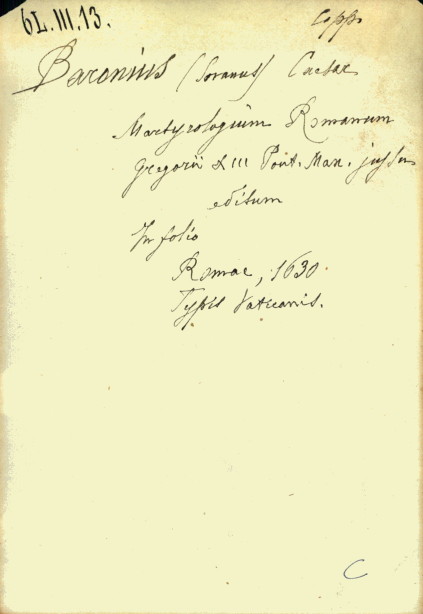 6L.III.13.
Copp.
Baronius (Soranus) Caesar
Martyrologium Romanum
Gregorii XIII Pont. Max. jussu
editum
In folio
Romae, 1630.
Typis Vaticanis.
C